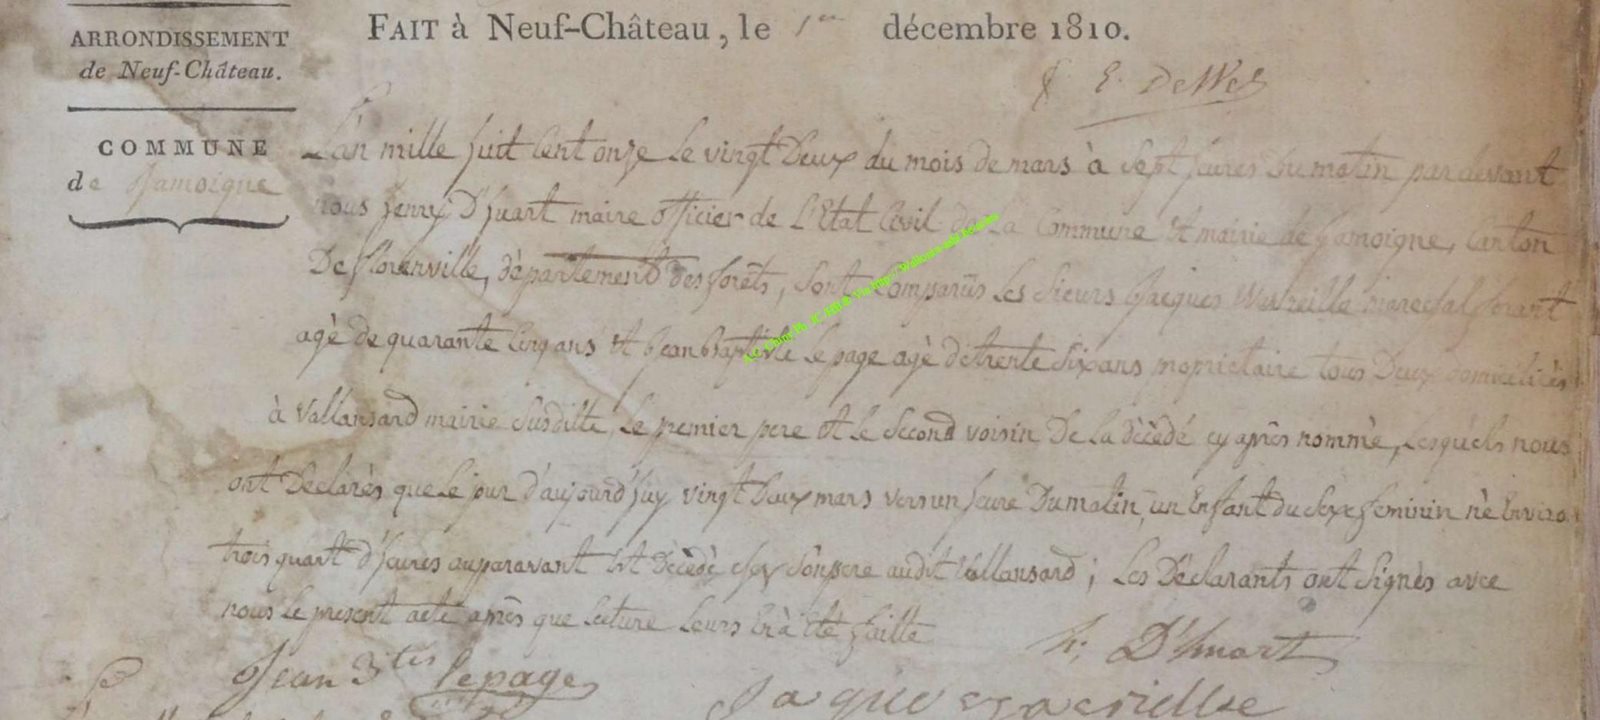 ARRONDISSEMENT
de Neuf-Château.
COMMUNE
de Jamoigne
FAIT à Neuf-Château, le 1er décembre 1810.
E. DeWez
L'an mille huit Cent onze Le vingt Deux du mois de mars à Sept heures du matin par devant
nous henry D'huart maire officier de L'Etat Civil de La Commune et mairie de Jamoigne, Canton
De florenville, département des forêts, Sont Comparüs Les Sieurs Jacques marechal ferant
agé de quarante Cinq ans et Jean Baptiste Le page agé de trente Six ans propriétaire tous Deux domiciliés
à Vallansard mairie Susditte, Le premier pere et le Second voisin De la décédé cy après nommé, Lesquels nous
ont Déclarés que Le jour d'aujourd'huy vingt Deux mars vers un heure Du matin, un Enfant du Sexe feminin né Enviro
trois quart d'heures auparavant est Décédé chez Son pere audit Vallansard; Les Déclarants ont Signés avec
nous le present acte après que Lecture Leurs En à Eté faitte
Jean Btes lepage
h; D'huart